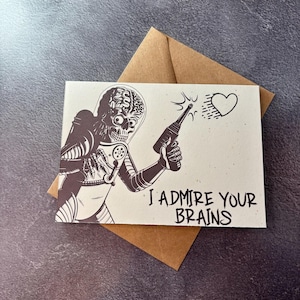 I ADMIRE YOUR
BRAINS